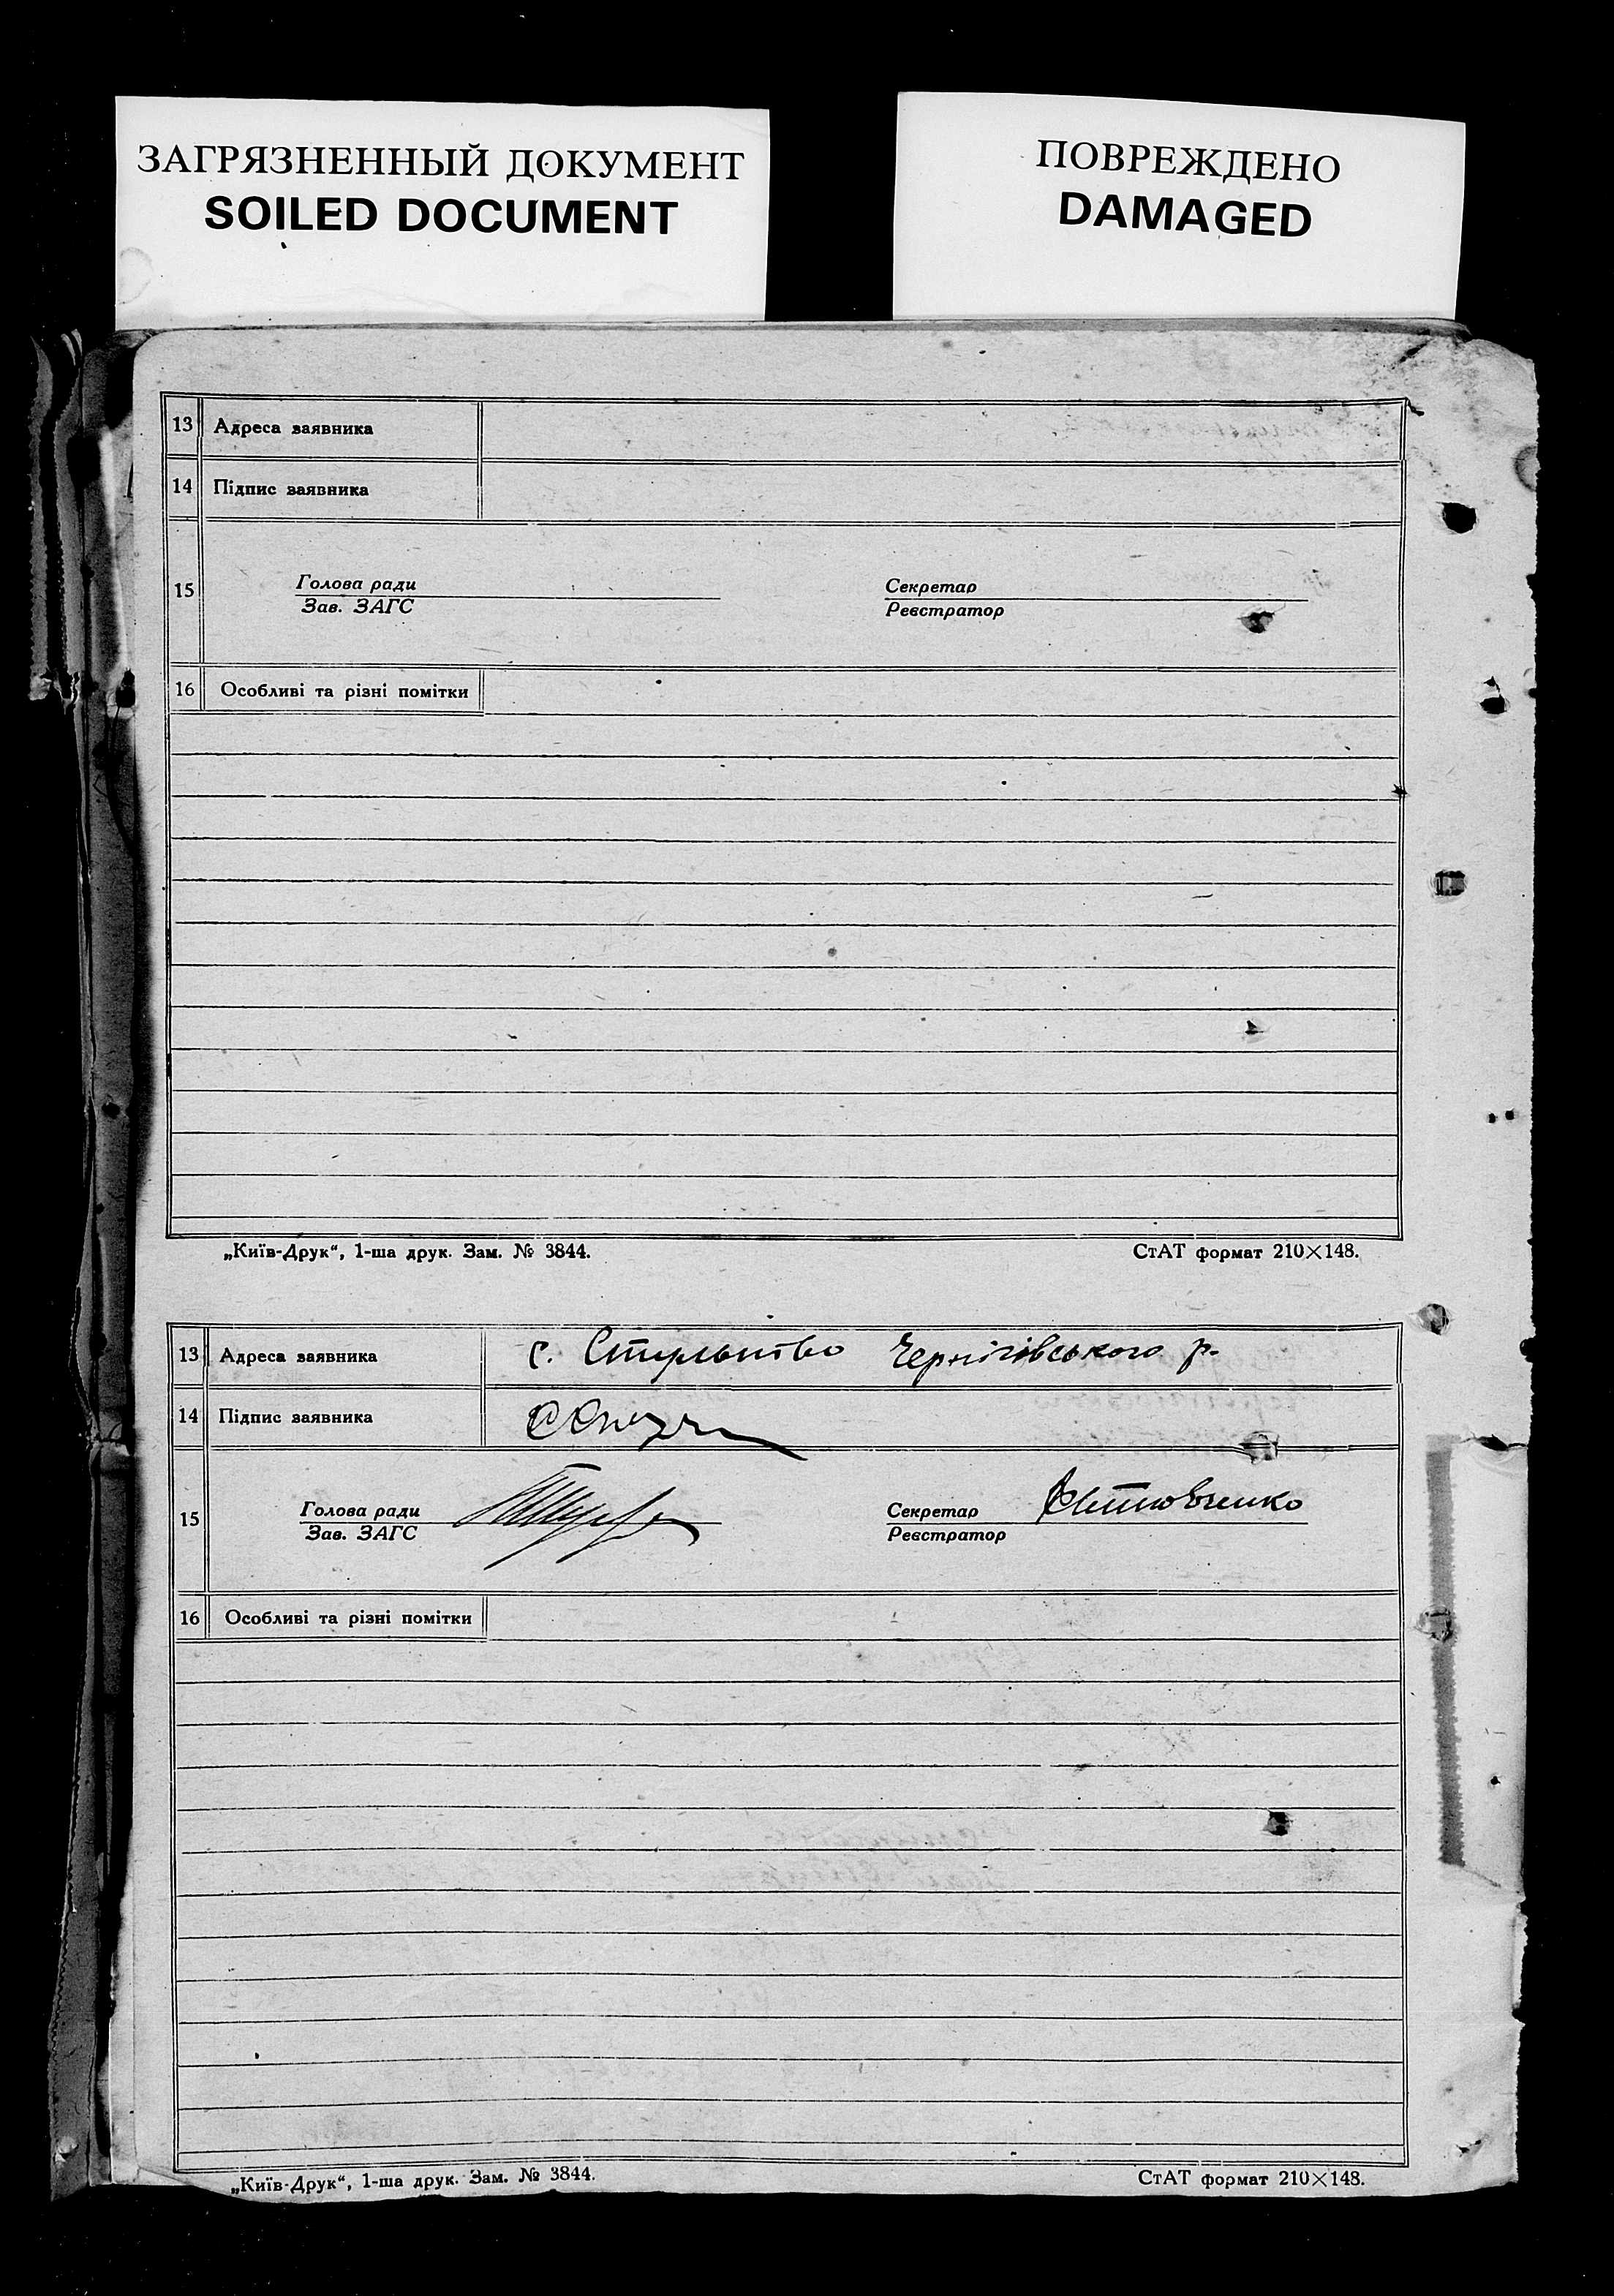 ЗАГРЯЗНЕННЫЙ ДОКУМЕНТ
SOILED DOCUMENT
ПОВРЕЖДЕНО
DAMAGED
13 Адреса заявника
14 Підпис заявника
15 Голова ради Секретар
Зав. ЗАГС Реєстратор
16 Особливі та різні помітки
„Київ-Друк“, 1-ша друк. Зам. № 3844. СтАТ формат 210×148.
13 Адреса заявника с. Чернігівського р.
14 Підпис заявника
15 Голова ради Секретар
Зав. ЗАГС Реєстратор
16 Особливі та різні помітки
„Київ-Друк“, 1-ша друк. Зам. № 3844. СтАТ формат 210×148.